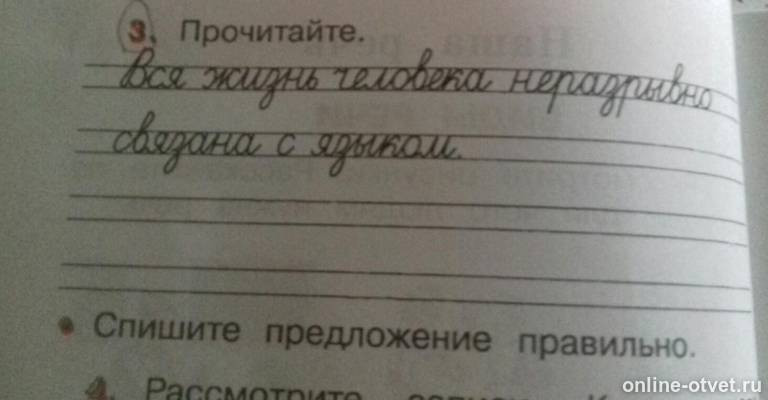 3. Прочитайте.
Вся жизнь человека неразрывно
связана с языком.
• Спишите предложение правильно.
4. Рассмотрите
online-otvet.ru